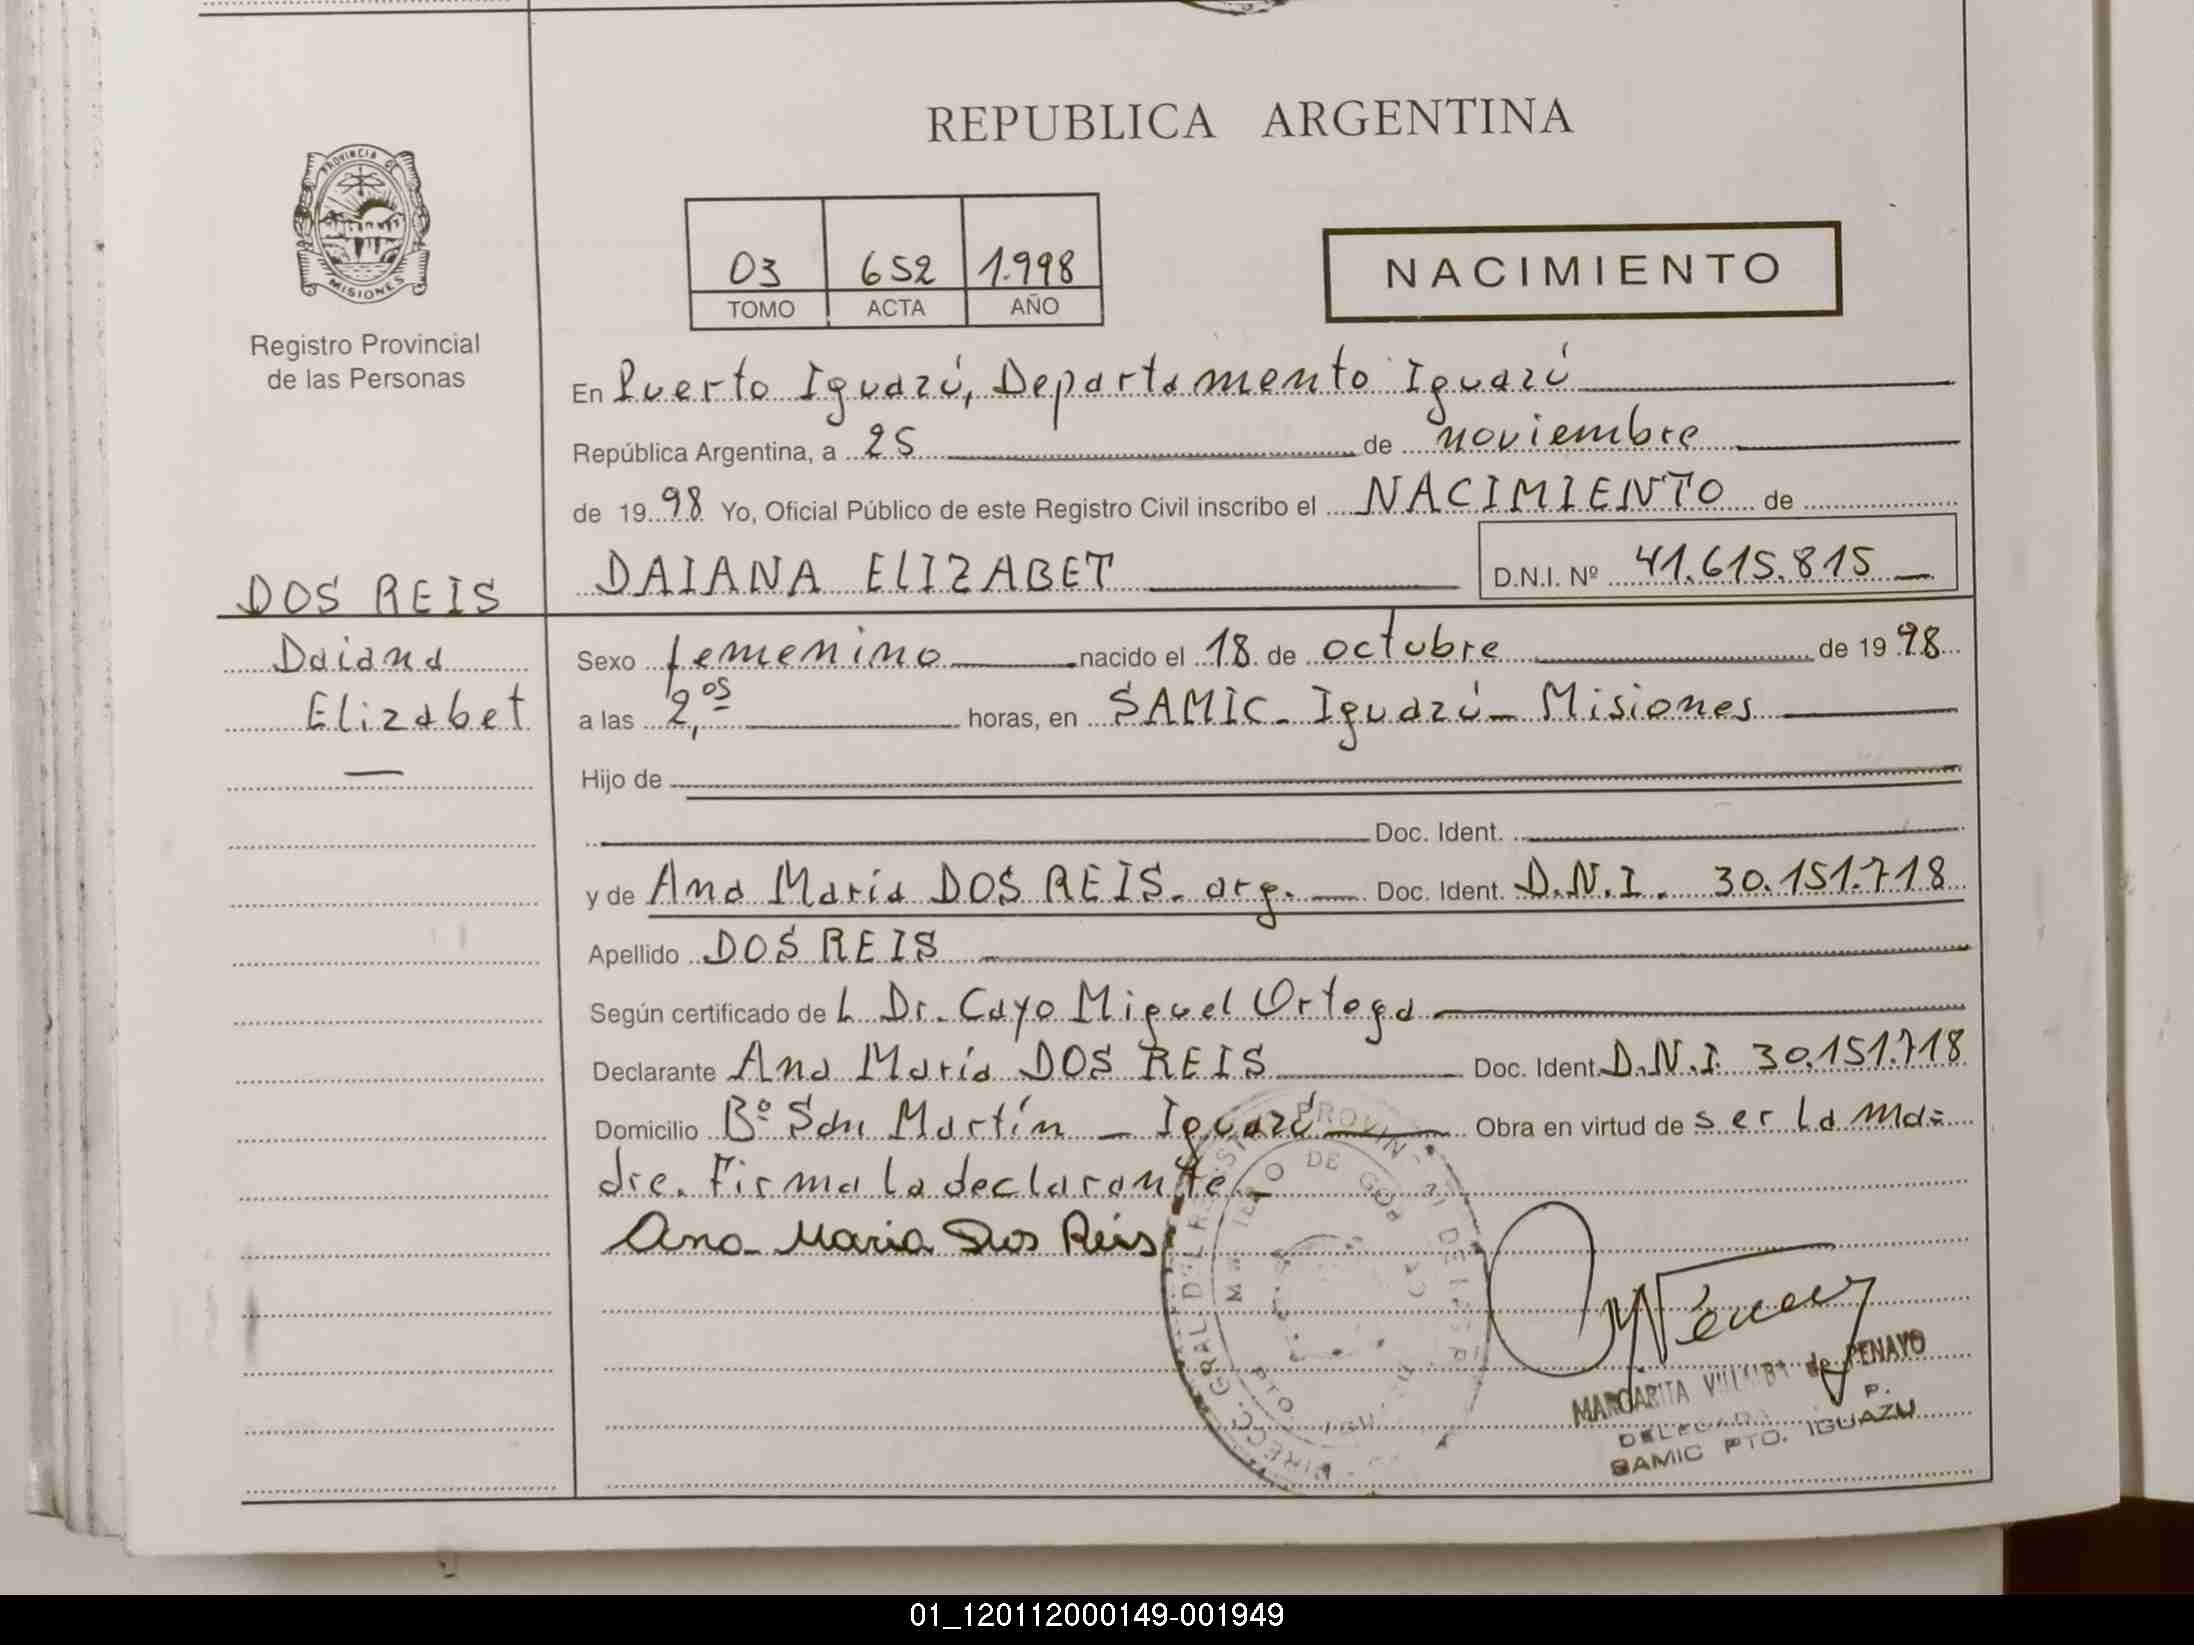 REPUBLICA ARGENTINA
PROVINCIA DE
MISIONES
Registro Provincial
de las Personas
03 652 1.998
TOMO ACTA AÑO
NACIMIENTO
En Puerto Iguazú, Departamento Iguazú
República Argentina, a 25 de noviembre
de 1998 Yo, Oficial Público de este Registro Civil inscribo el NACIMIENTO de
DAIANA ELIZABET D.N.I. Nº 41.615.815
DOS REIS
Daiana
Elizabet
Sexo femenino nacido el 18 de octubre de 1998
a las 2,os horas, en SAMIC - Iguazú - Misiones
Hijo de
Doc. Ident.
y de Ana María DOS REIS - arg. Doc. Ident. D.N.I. 30.151.718
Apellido DOS REIS
Según certificado de L Dr. Cayo Miguel Ortega
Declarante Ana María DOS REIS Doc. Ident. D.N.I. 30.151.718
Domicilio Bº San Martín - Iguazú Obra en virtud de ser la ma=
dre. Firma la declarante -
Ana Maria Dos Reis
MARGARITA VILLALBA de PENAYO
DELEGADA
SAMIC PTO. IGUAZU
01_120112000149-001949